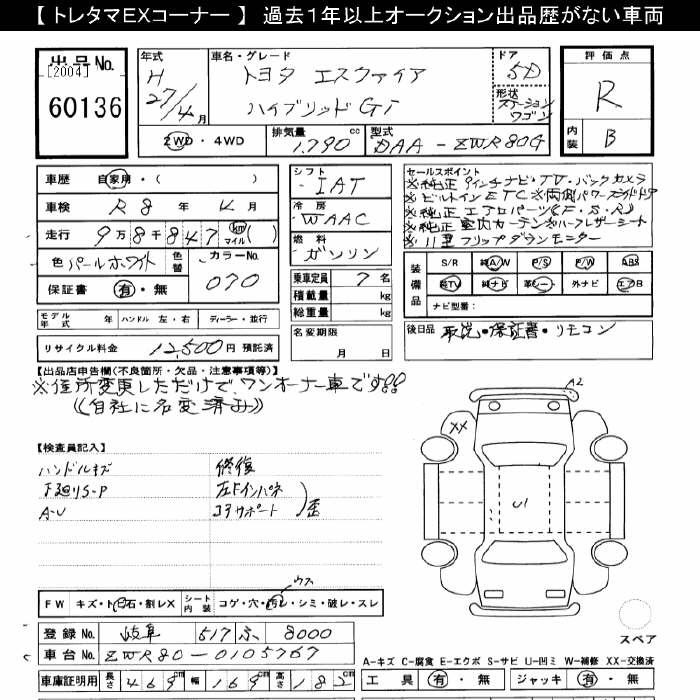 【 トレタマEXコーナー 】 過去１年以上オークション出品歴がない車両
出品No.
[2004]
60136
年式
H
27/4月
車名・グレード
トヨタ エスクァイア
ハイブリッドGi
ドア
5D
形状
ステーション
ワゴン
評価点
R
内装
B
2WD・4WD
排気量
1,790 cc
型式
DAA-ZWR80G
車歴 自家用・( )
車検 R8年4月
走行 9万8千847 km マイル( )
色 パールホワイト
色替
カラーNo.
070
保証書 有・無
シフト
IAT
冷房
WAAC
燃料
ガソリン
乗車定員 7名
積載量 kg
総重量 kg
セールスポイント
※純正9インチナビ・TV・バックカメラ
※ビルトインETC※両側パワースライドドア
※純正エアロパーツ(F・S・R)
※純正室内カーテン※ハーフレザーシート
※11型フリップダウンモニター
装備品
S/R 純A/W P/S P/W ABS
純TV 純ナビ 革シート 外ナビ エアB
ナビ型番:
モデル年式 年 ハンドル 左・右 ディーラー・並行
リサイクル料金 12,500円 預託済
名変期限
月 日
後日品 取説・保証書・リモコン
【出品店申告欄(不良箇所・欠品・注意事項等)】
※住所変更しただけで、ワンオーナー車です!!
((自社に名変済み))
【検査員記入】
ハンドルキズ 修復
下廻りS-P 左Fインパネ
A-U コアサポート 歪
A2
XX
U1
FW キズ・ト・石・割レX
シート内装 コゲ・穴・汚レ・シミ・破レ・スレ
ウス
スペア
登録No. 岐阜 517 ふ 8000
車台No. ZWR80-0105767
車庫証明用 長さ 469 幅 169 高さ 182
A-キズ C-腐食 E-エクボ S-サビ U-凹ミ W-補修 XX-交換済
工具 有・無 ジャッキ 有・無